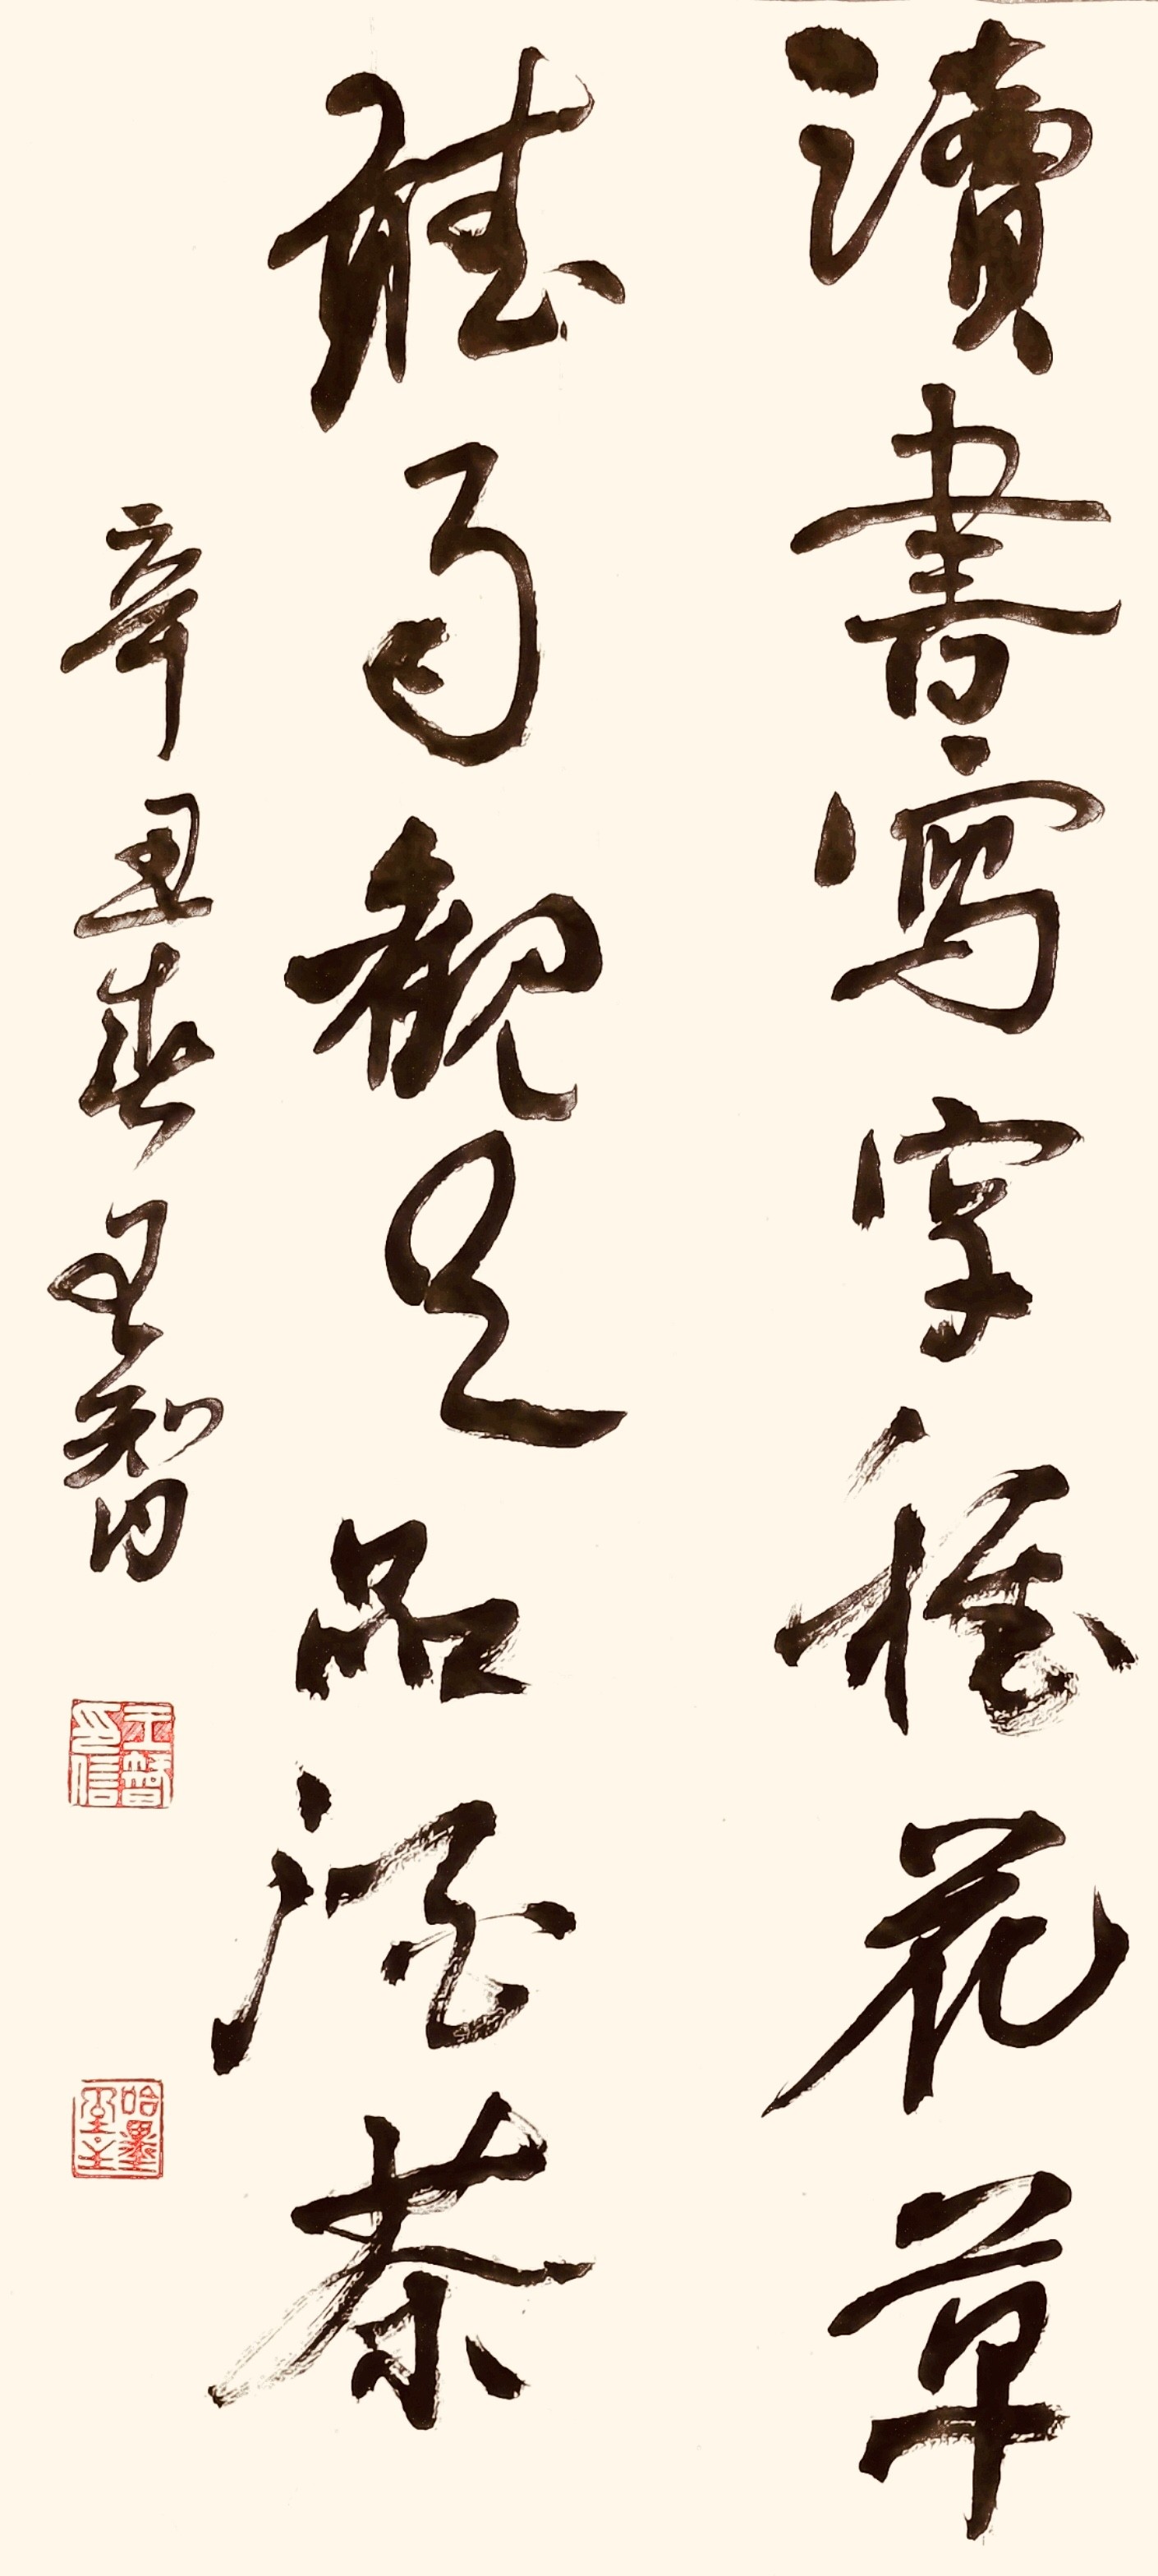 讀書寫字種花草
聽雨觀天品酒茶
辛丑春王智
王智印信
哈墨堂主